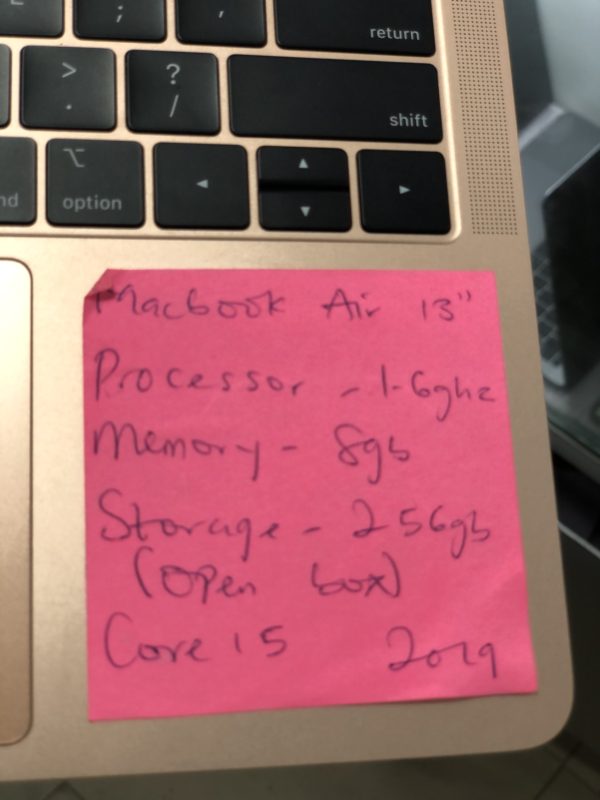 ;
'
return
>
.
?
/
shift
nd
option
Macbook Air 13"
Processor - 1.6ghz
Memory - 8gb
Storage - 256gb
(open box)
Core i5 2019